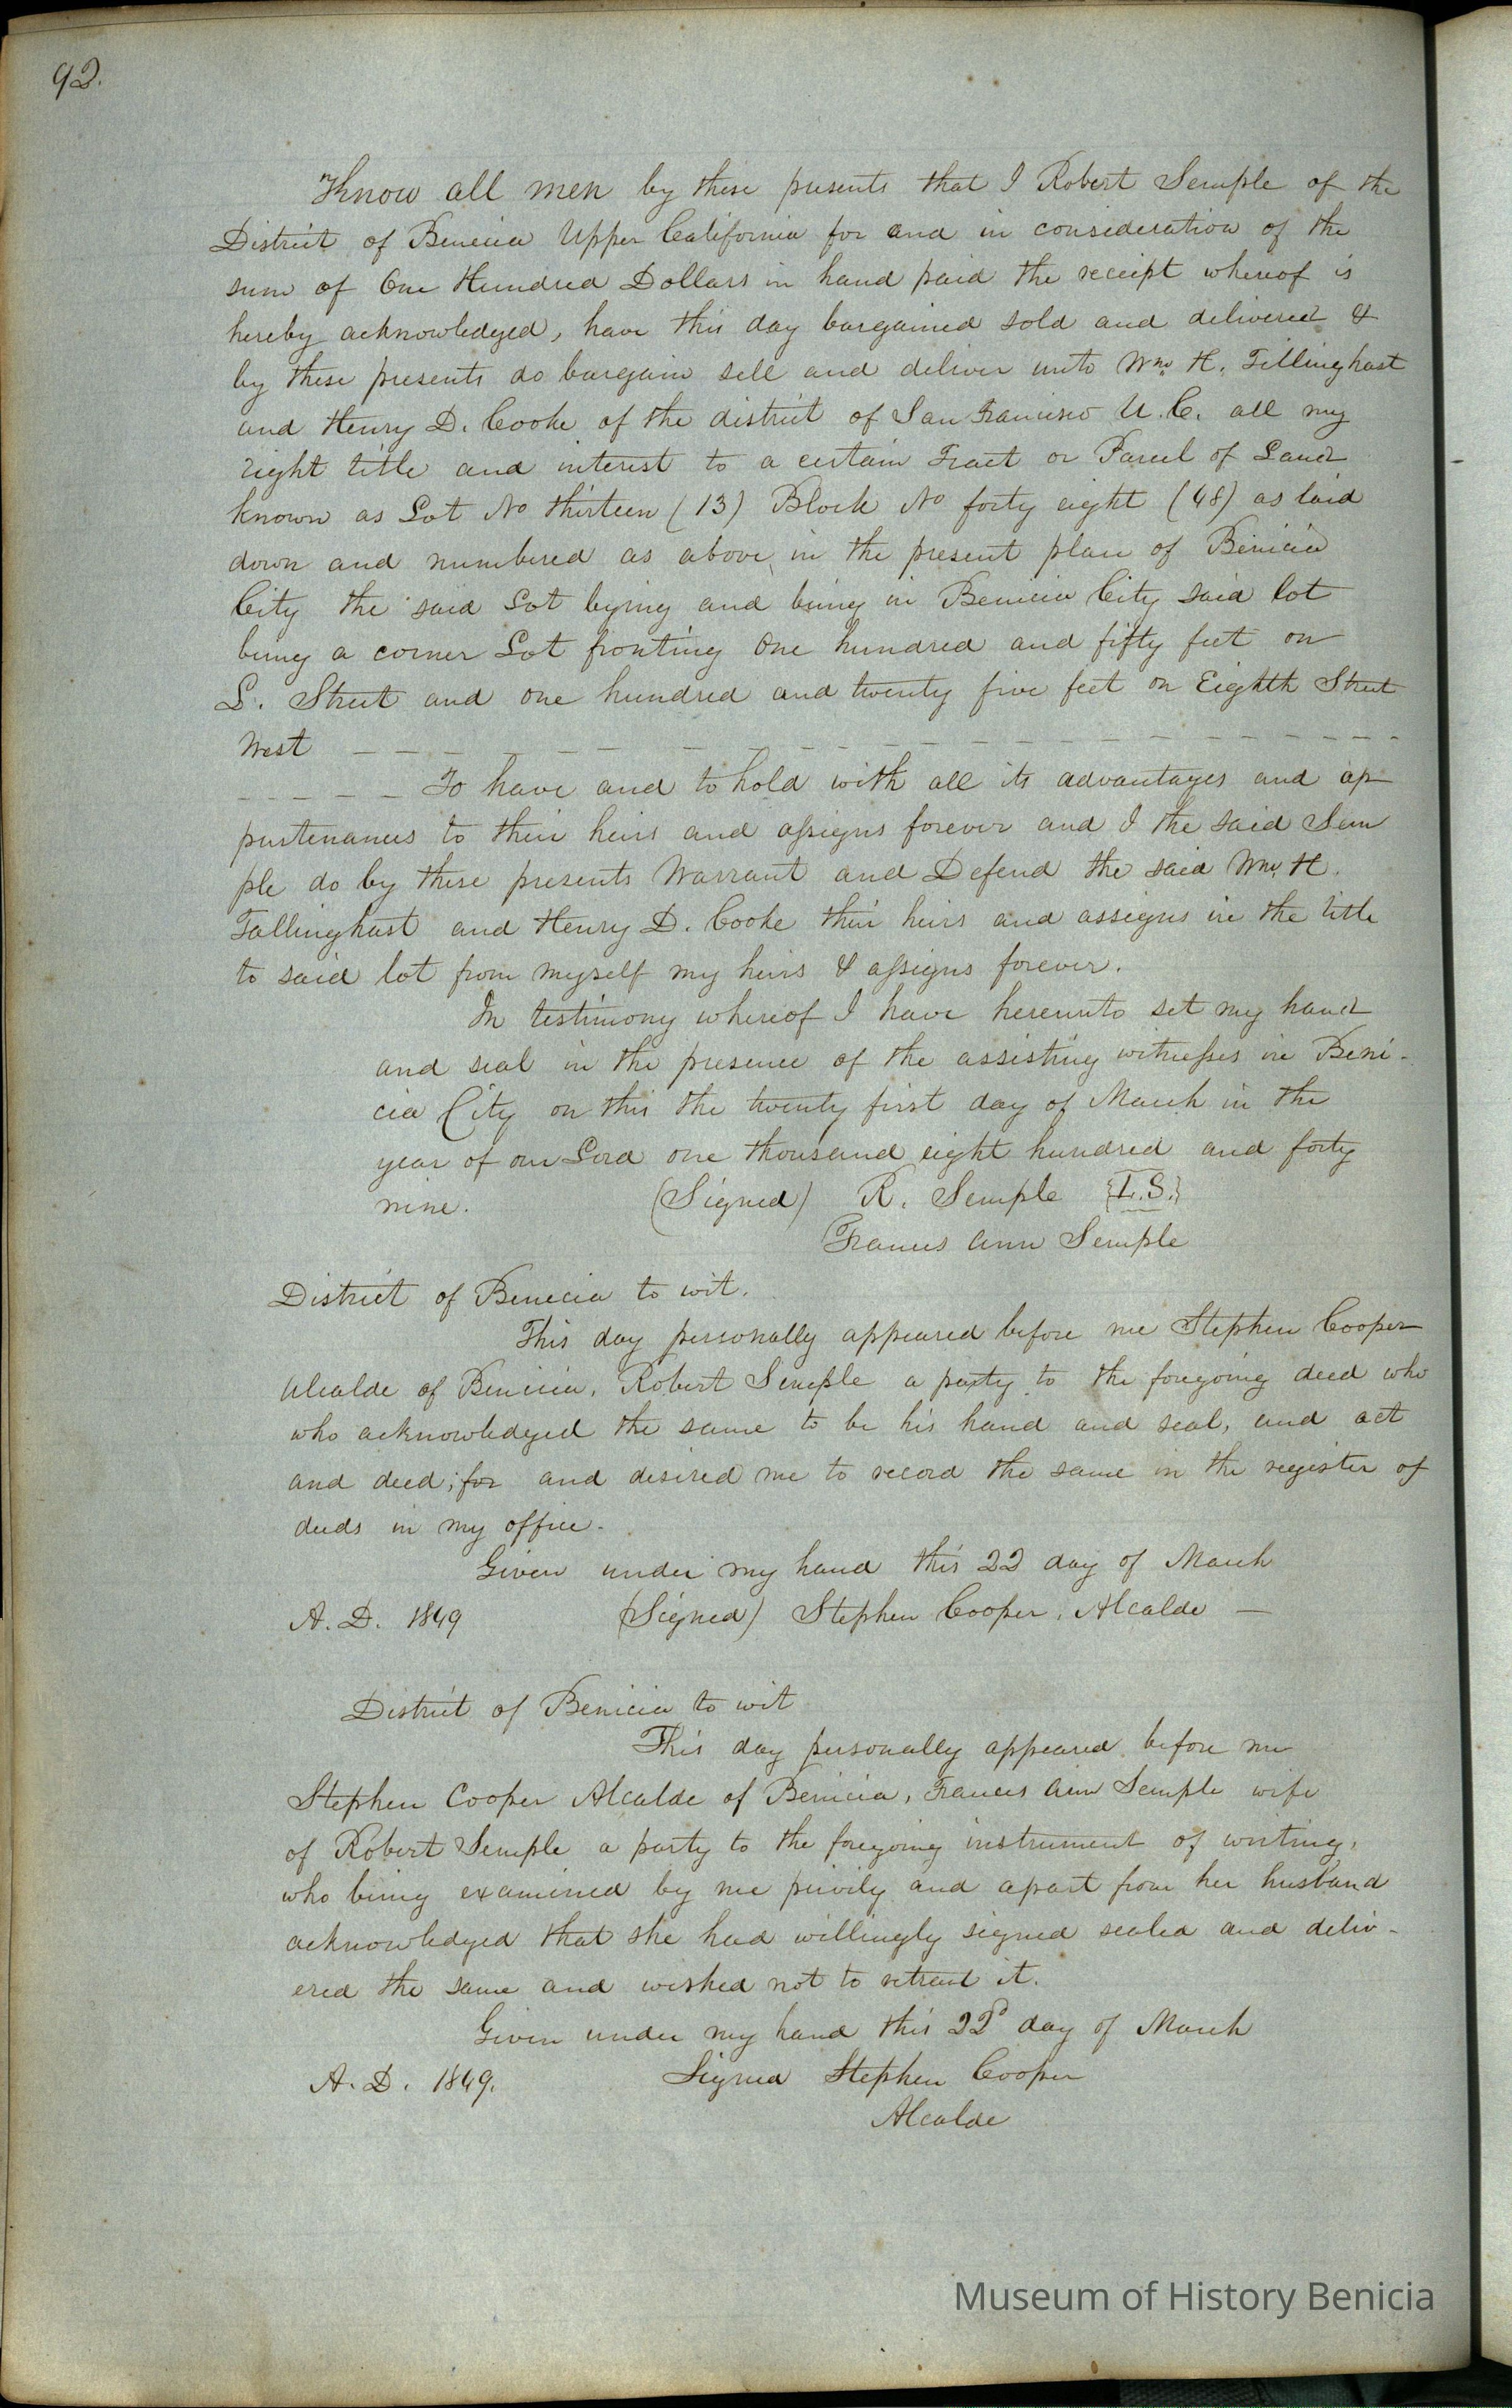 92.
Know all men by these presents that I Robert Semple of the
District of Benicia Upper California for and in consideration of the
sum of One Hundred Dollars in hand paid the receipt whereof is
hereby acknowledged, have this day bargained sold and delivered &
by these presents do bargain sell and deliver unto Wm. H. Tillinghast
and Henry D. Cooke of the district of San Francisco U.C. all my
right title and interest to a certain Tract or Parcel of Land
known as Lot No thirteen (13) Block No forty eight (48) as laid
down and numbered as above in the present plan of Benicia
City the said Lot lying and being in Benicia City said lot
being a corner Lot fronting One hundred and fifty feet on
L. Street and one hundred and twenty five feet on Eighth Street
West
To have and to hold with all its advantages and ap
purtenances to their heirs and assigns forever and I the said Sem
ple do by these presents Warrant and Defend the said Wm. H.
Tallinghast and Henry D. Cooke their heirs and assigns in the title
to said lot from myself my heirs & assigns forever.
In testimony whereof I have hereunto set my hand
and seal in the presence of the assisting witnesses in Beni-
cia City on this the twenty first day of March in the
year of our Lord one thousand eight hundred and forty
nine. (Signed) R. Semple {L.S.}
Frances Ann Semple
District of Benicia to wit.
This day personally appeared before me Stephen Cooper
Alcalde of Benicia, Robert Semple a party to the foregoing deed who
who acknowledged the same to be his hand and seal, and act
and deed; for and desired me to record the same in the register of
deeds in my office.
Given under my hand this 22 day of March
A. D. 1849 (Signed) Stephen Cooper, Alcalde —
District of Benicia to wit
This day personally appeared before me
Stephen Cooper Alcalde of Benicia, Frances Ann Semple wife
of Robert Semple a party to the foregoing instrument of writing,
who being examined by me privily and apart from her husband
acknowledged that she had willingly signed sealed and deliv-
ered the same and wished not to retract it.
Given under my hand this 22d day of March
A. D. 1849. Signed Stephen Cooper
Alcalde
Museum of History Benicia